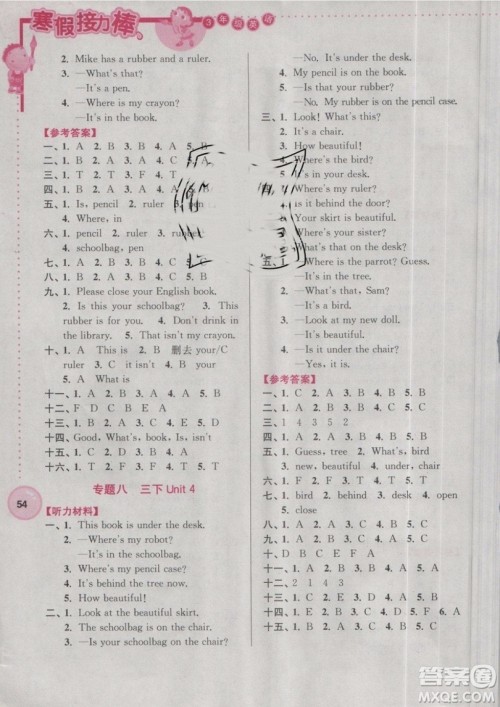 寒假接力棒
2. Mike has a rubber and a ruler.
3. —What's that?
—It's a pen.
4. —Where is my crayon?
—It's in the book.
【参考答案】
一、1. A 2. B 3. B 4. A 5. B
二、1. A 2. B 3. A 4. C 5. A
四、1.
五、1. Is, pencil 2. Is, pen
4. Where, in
六、1. pencil 2. rubber
4. schoolbag, pen
八、1. B 2. A
九、1. Please close your English book.
2. Is this your schoolbag? 3. This
rubber is for you. 4. Don't drink in
the library. 5. What a big cake!
十、1. A This is 2. B 删去 your/C
ruler 3. B the 4. A Where's
5. A What is
十一、1. C 2. A 3. B 4. B 5. A
十二、F D C B E A
十四、Good, What's, book, It's, Is, isn't
十五、1. C 2. A 3. A 4. B 5. A
十六、1. T 2. F 3. T 4. F 5. T
专题八 三下 Unit 4
【听力材料】
一、1. This book is under the desk.
2. —Where's my robot?
—It's in the schoolbag.
3. Where's my pencil case?
4. It's behind the tree now.
5. How beautiful!
二、1. Look at the beautiful skirt.
2. —Is your schoolbag on the chair?
54
—No. It's under the desk.
3. My pencil is on the desk.
4. —Is that your rubber?
—No. My rubber is on the pencil case.
三、1. Look! What's this?
2. It's a chair.
3. How beautiful!
4. Where's the bird?
5. It's in your desk.
Where's my ruler?
Is it behind the door?
Your skirt is beautiful.
What's that on the desk?
五、1. Where is the parrot? Guess.
—It's in the tree.
2. —What's that, Sam?
—It's a bird.
3. —Look at my new doll.
—How beautiful!
4. —Is it under the chair?
—Yes, it is.
【参考答案】
一、1. C 2. A 3. A 4. B 5. B
二、1 4 3 5 2
三、1. C 2. B 3. B 4. C 5. A
四、1. B 2. A 3. B 4. B 5. A
五、1. Guess, tree 2. What's, bird
3. new, beautiful 4. under, chair
六、1. F 2. T 3. F 4. F 5. T
七、1. door 2. open 3. beautiful
4. under 5. bird 6. behind
八、1. on 2. old 3. behind 4. open
5. close
九、1. B 2. C 3. A 4. B 5. B
十、D B E F A C
十一、1. A 2. B 3. B 4. A 5. B
十二、2 1 4 3
十四、1. E 2. D 3. A 4. B 5. C
十五、1. C 2. C 3. A 4. B 5. A
答案圈
MXQE.COM